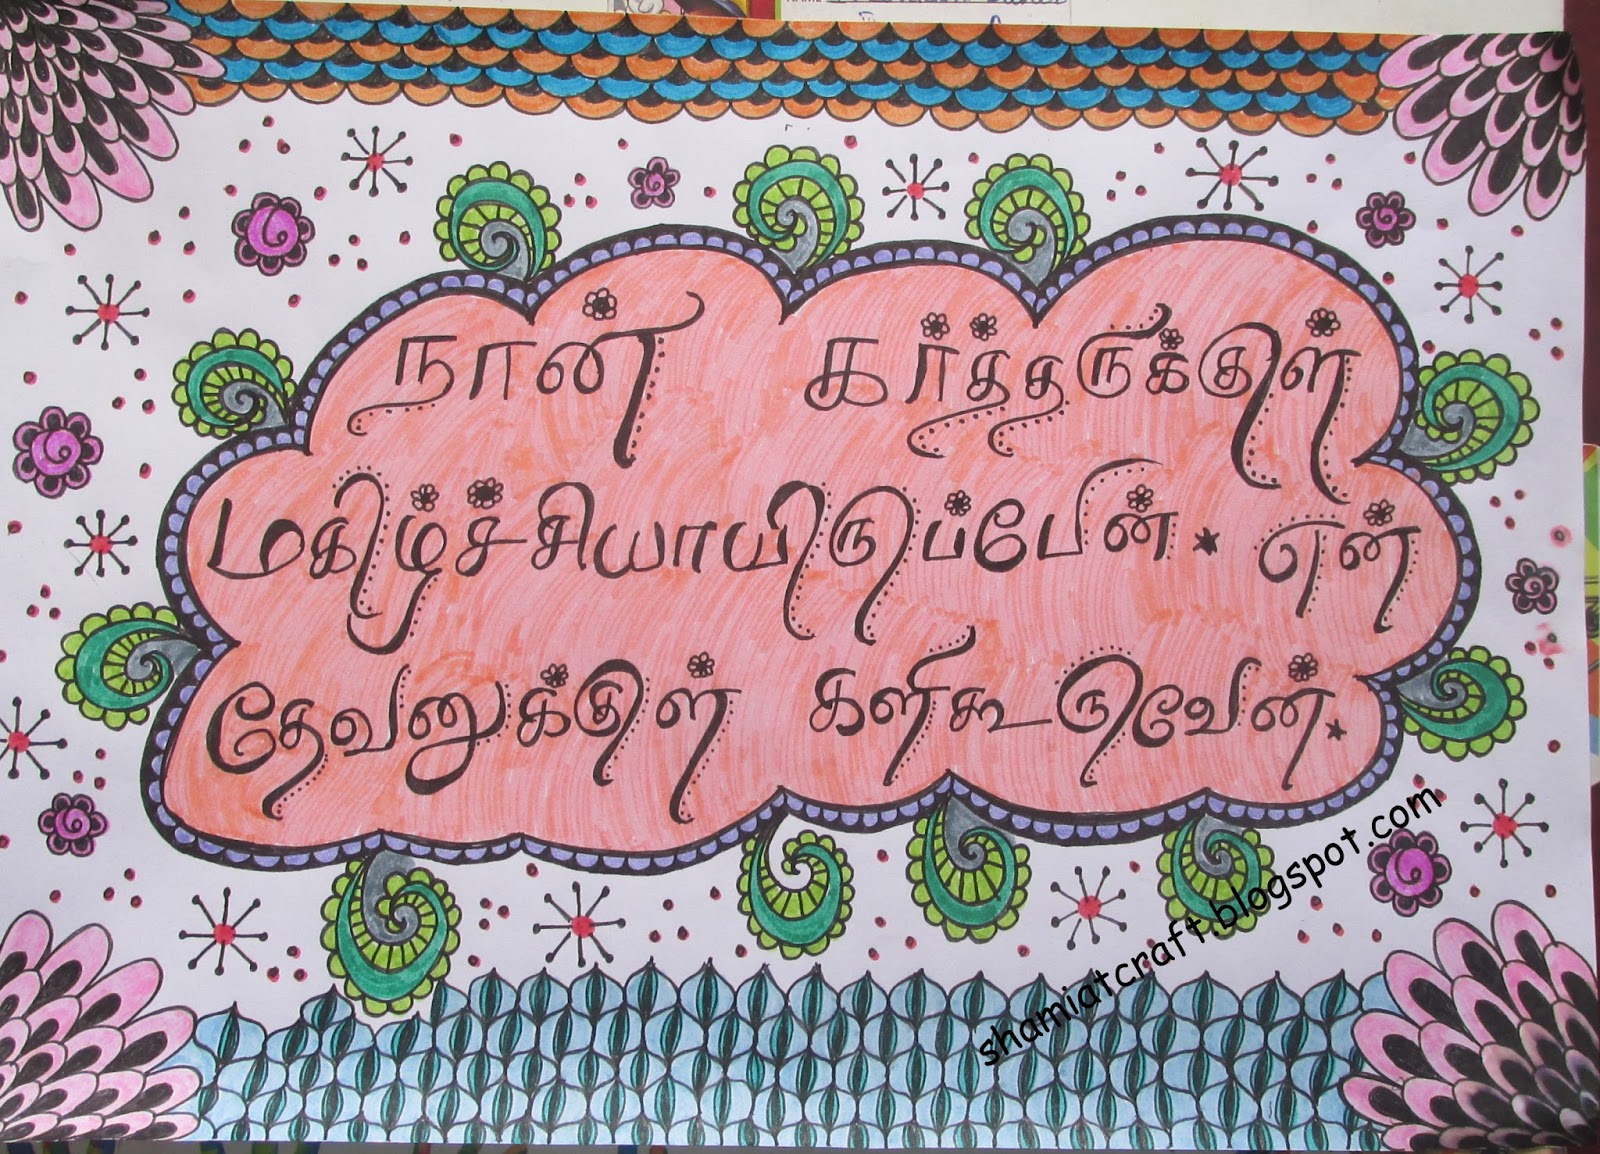 நான் கர்த்தருக்குள்
மகிழ்ச்சியாயிருப்பேன். என்
தேவனுக்குள் களிகூருவேன்.
shamiatcraft.blogspot.com